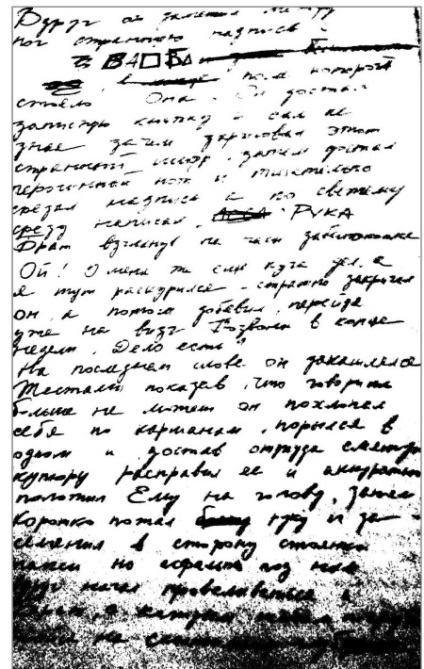 Вдруг он заметил между
ног странную надпись:
под которой
стояло Она. Он достал
записную книжку и сам не
зная зачем зарисовал этот
странный шифр, затем достал
перочинный нож и тщательно
срезал надпись а по свежему
срезу написал. РУКА
взглянув на часы забеспокоился
Ой! У меня ж еще куча дел, а
я тут раскурился - страшно закричал
он, а потом добавил, перейдя
уже на визг Позвони в конце
недели. Дело есть!
На последнем слове он закашлялся
Жестами показав, что говорить
больше не может он похлопал
себя по карманам, порылся в
одном и достав оттуда смятую
купюру расправил ее и аккуратно
положил Ему на голову, затем
коротко пожал руку и за-
семенил в сторону стоянки
такси но асфальт под ним
начал проваливаться и